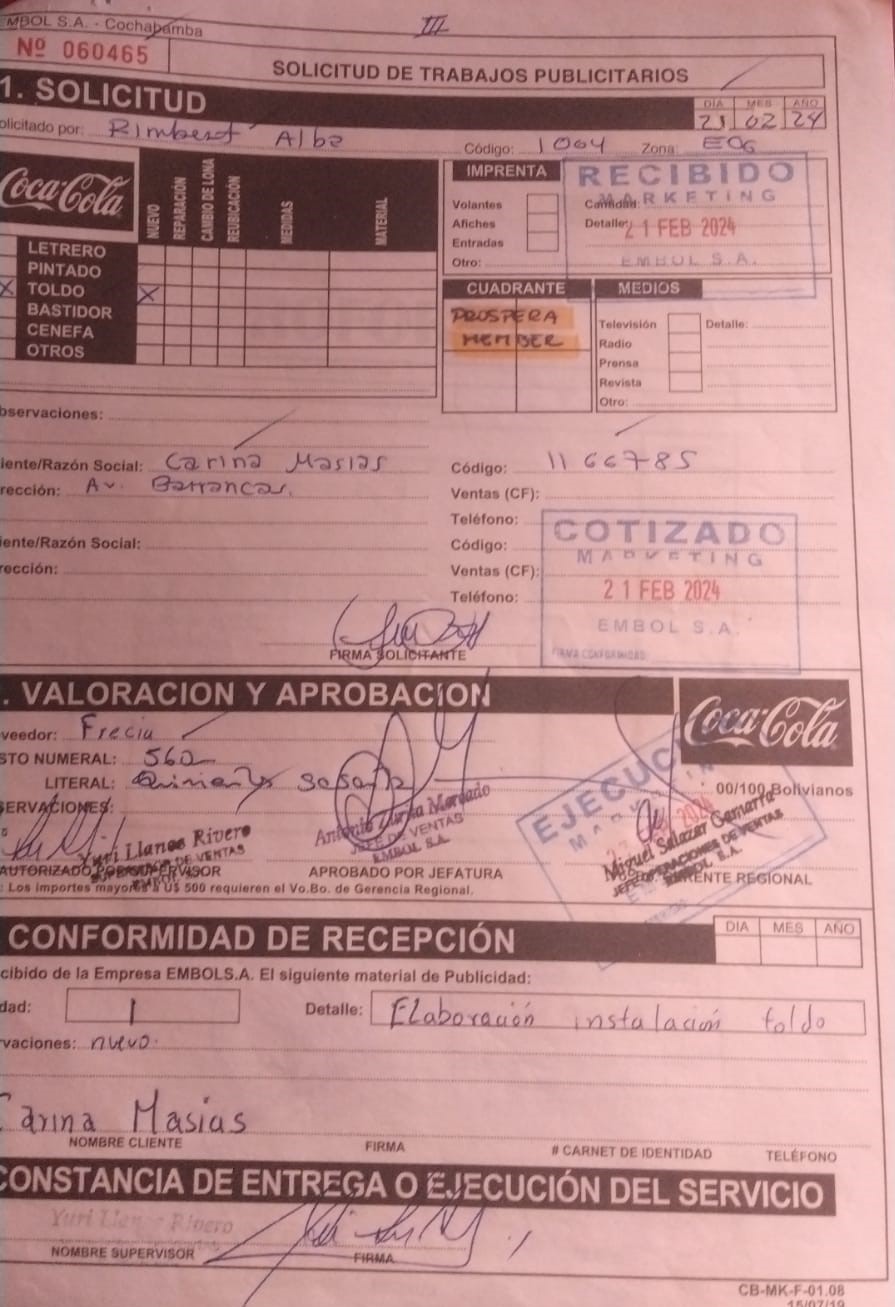 MBOL S.A. - Cochabamba
III
Nº 060465
SOLICITUD DE TRABAJOS PUBLICITARIOS
1. SOLICITUD
DIA MES AÑO
21 02 24
olicitado por: Rimbert Alba Código: 1004 Zona: E06
Coca-Cola
NUEVO
REPARACIÓN
CAMBIO DE LONA
REUBICACIÓN
MEDIDAS
MATERIAL
LETRERO
PINTADO
X TOLDO X
BASTIDOR
CENEFA
OTROS
IMPRENTA
Volantes
Afiches
Entradas
Otro:
Cantidad:
Detalle:
RECIBIDO
MARKETING
21 FEB 2024
EMBOL S.A.
CUADRANTE
PROSPERA
MEMBER
MEDIOS
Televisión Detalle:
Radio
Prensa
Revista
Otro:
bservaciones:
iente/Razón Social: Carina Masias Código: 1166785
rección: Av. Barrancas. Ventas (CF):
Teléfono:
iente/Razón Social: Código:
rección: Ventas (CF):
Teléfono:
COTIZADO
MARKETING
21 FEB 2024
EMBOL S.A.
FIRMA CONFORMIDAD
FIRMA SOLICITANTE
. VALORACION Y APROBACION
Coca-Cola
veedor: Frecia
STO NUMERAL: 560
LITERAL: Quinientos sesenta 00/100 Bolivianos
SERVACIONES:
Yuri Llanos Rivero
DE VENTAS
EMBOL S.A.
Mercado
JEFE DE VENTAS
EMBOL S.A.
EJECU
Miguel Salazar Gamarra
JEFE OPERACIONES DE VENTAS
EMBOL S.A.
AUTORIZADO POR SUPERVISOR APROBADO POR JEFATURA RENTE REGIONAL
: Los importes mayores a U$ 500 requieren el Vo.Bo. de Gerencia Regional.
CONFORMIDAD DE RECEPCIÓN
DIA MES AÑO
cibido de la Empresa EMBOLS.A. El siguiente material de Publicidad:
dad: 1 Detalle: Elaboración instalación toldo
vaciones: nuevo.
Carina Masias
NOMBRE CLIENTE FIRMA # CARNET DE IDENTIDAD TELÉFONO
CONSTANCIA DE ENTREGA O EJECUCIÓN DEL SERVICIO
Yuri Rivero
NOMBRE SUPERVISOR FIRMA
CB-MK-F-01.08
15/07/19